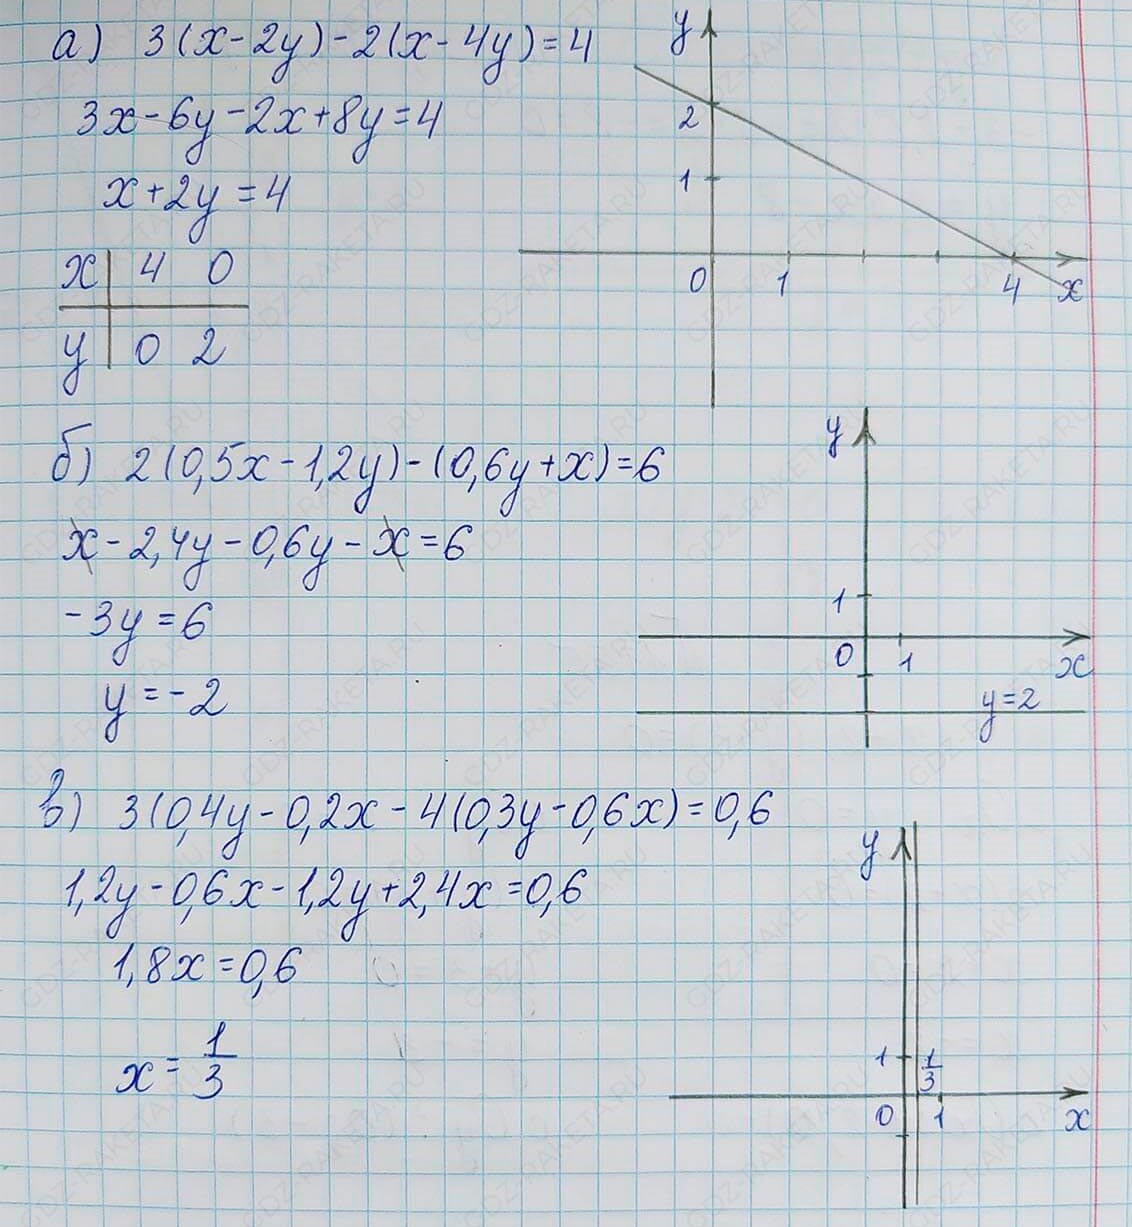 а) 3(x-2y)-2(x-4y)=4
3x-6y-2x+8y=4
x+2y=4
x 4 0
y 0 2
y
2
1
0 1 4 x
б) 2(0,5x-1,2y)-(0,6y+x)=6
x-2,4y-0,6y-x=6
-3y=6
y=-2
y
1
0 1 x
y=2
в) 3(0,4y-0,2x-4(0,3y-0,6x)=0,6
1,2y-0,6x-1,2y+2,4x=0,6
1,8x=0,6
x=1/3
y
1 1/3
0 1 x
GDZ-RAKETA.RU